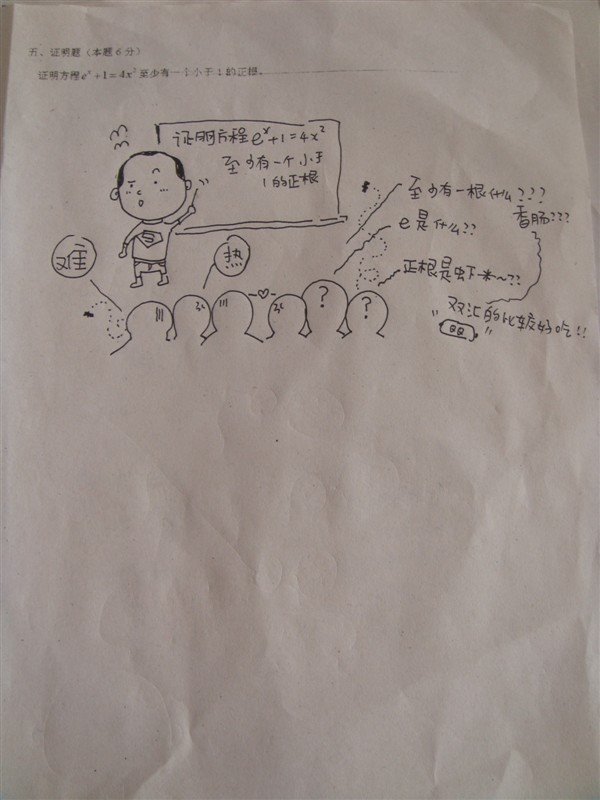 五、证明题（本题6分）
证明方程eˣ+1=4x²至少有一个小于1的正根。
证明方程eˣ+1=4x²
至少有一个小于
1的正根
至少有一根什么???
香肠???
e是什么??
难
热
正根是虾米~??
"双汇的比较好吃!!"
? ?